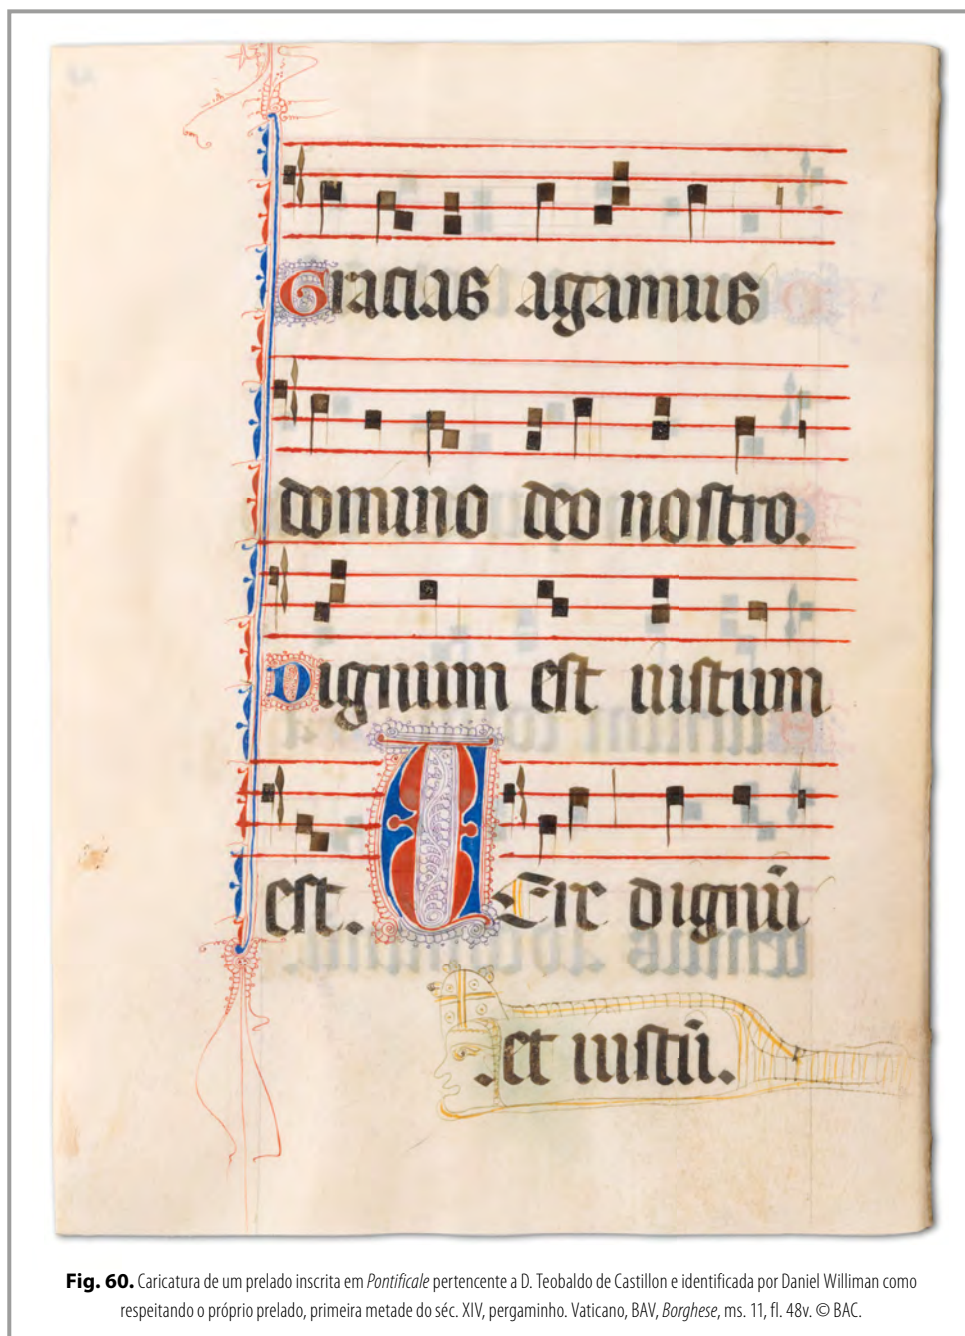 Gracias agamus
domino deo nostro.
Dignum est iustum
est. Ere dignū
.et iustū.
Fig. 60. Caricatura de um prelado inscrita em Pontificale pertencente a D. Teobaldo de Castillon e identificada por Daniel Williman como
respeitando o próprio prelado, primeira metade do séc. XIV, pergaminho. Vaticano, BAV, Borghese, ms. 11, fl. 48v. © BAC.